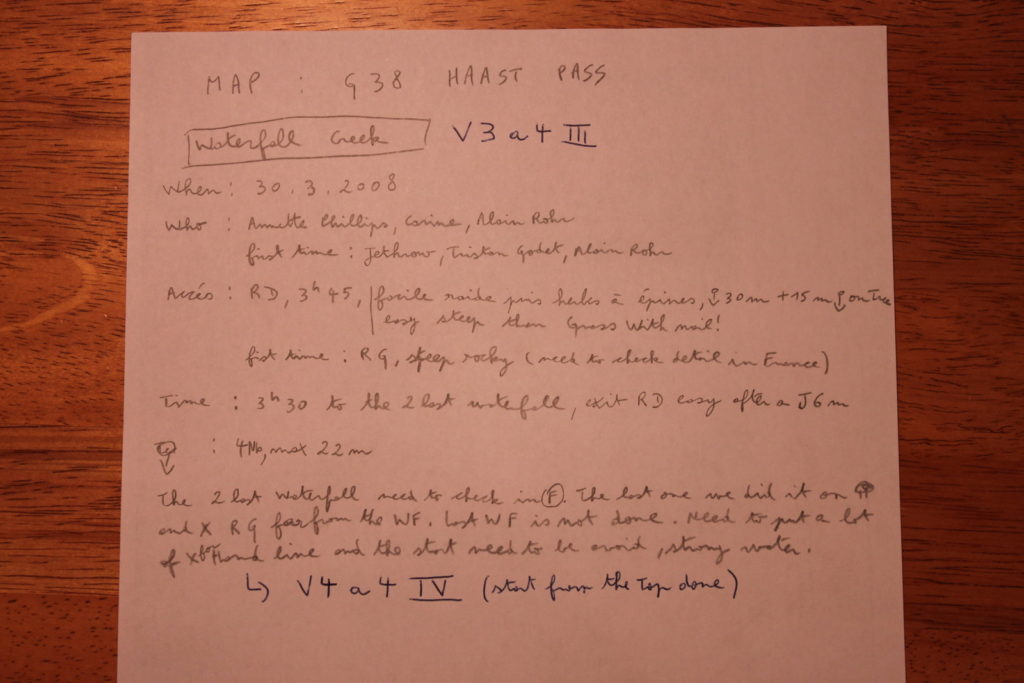 MAP : G38 HAAST PASS
Waterfall Creek V3 a4 III
When : 30.3.2008
Who : Annette Phillips, Corine, Alain Rohr
first time : Jethrow, Tristan Godet, Alain Rohr
Accés : RD, 3h45, facile raide puis herbes à épines, 30m + 15m on Tree
easy steep than Grass With nail!
fist time : RG, steep rocky (need to check detail in France)
Time : 3h30 to the 2 last waterfall, exit RD easy after a J6m
: 4Nb, max 22m
The 2 last Waterfall need to check in F. The last one we did it on
and X RG far from the WF. Last WF is not done. Need to put a lot
of X for Hand line and the start need to be avoid, strong water.
↳ V4 a4 IV (start from the Top done)